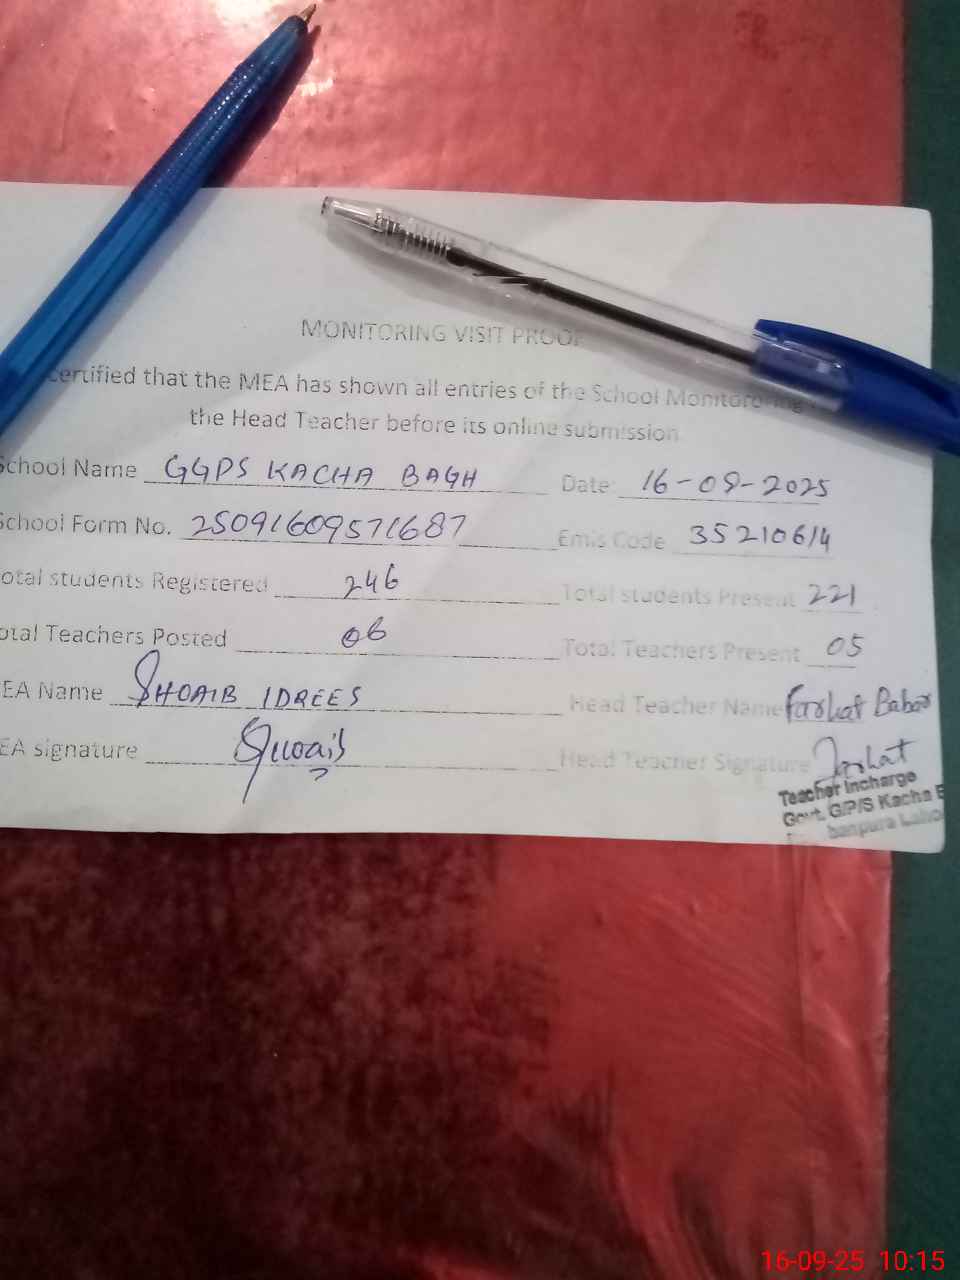 MONITORING VISIT PROOF
certified that the MEA has shown all entries of the School Monitoring
the Head Teacher before its online submission
School Name GGPS KACHA BAGH Date: 16-09-2025
School Form No. 25091609571687 Emis Code 35210614
otal students Registered 246 Total students Present 221
otal Teachers Posted 06 Total Teachers Present 05
EA Name SHOAIB IDREES Head Teacher Name Farhat Babar
EA signature Shoaib Head Teacher Signature Farhat
Teacher Incharge
Govt. G/P/S Kacha B
banpura Laho
16-09-25 10:15